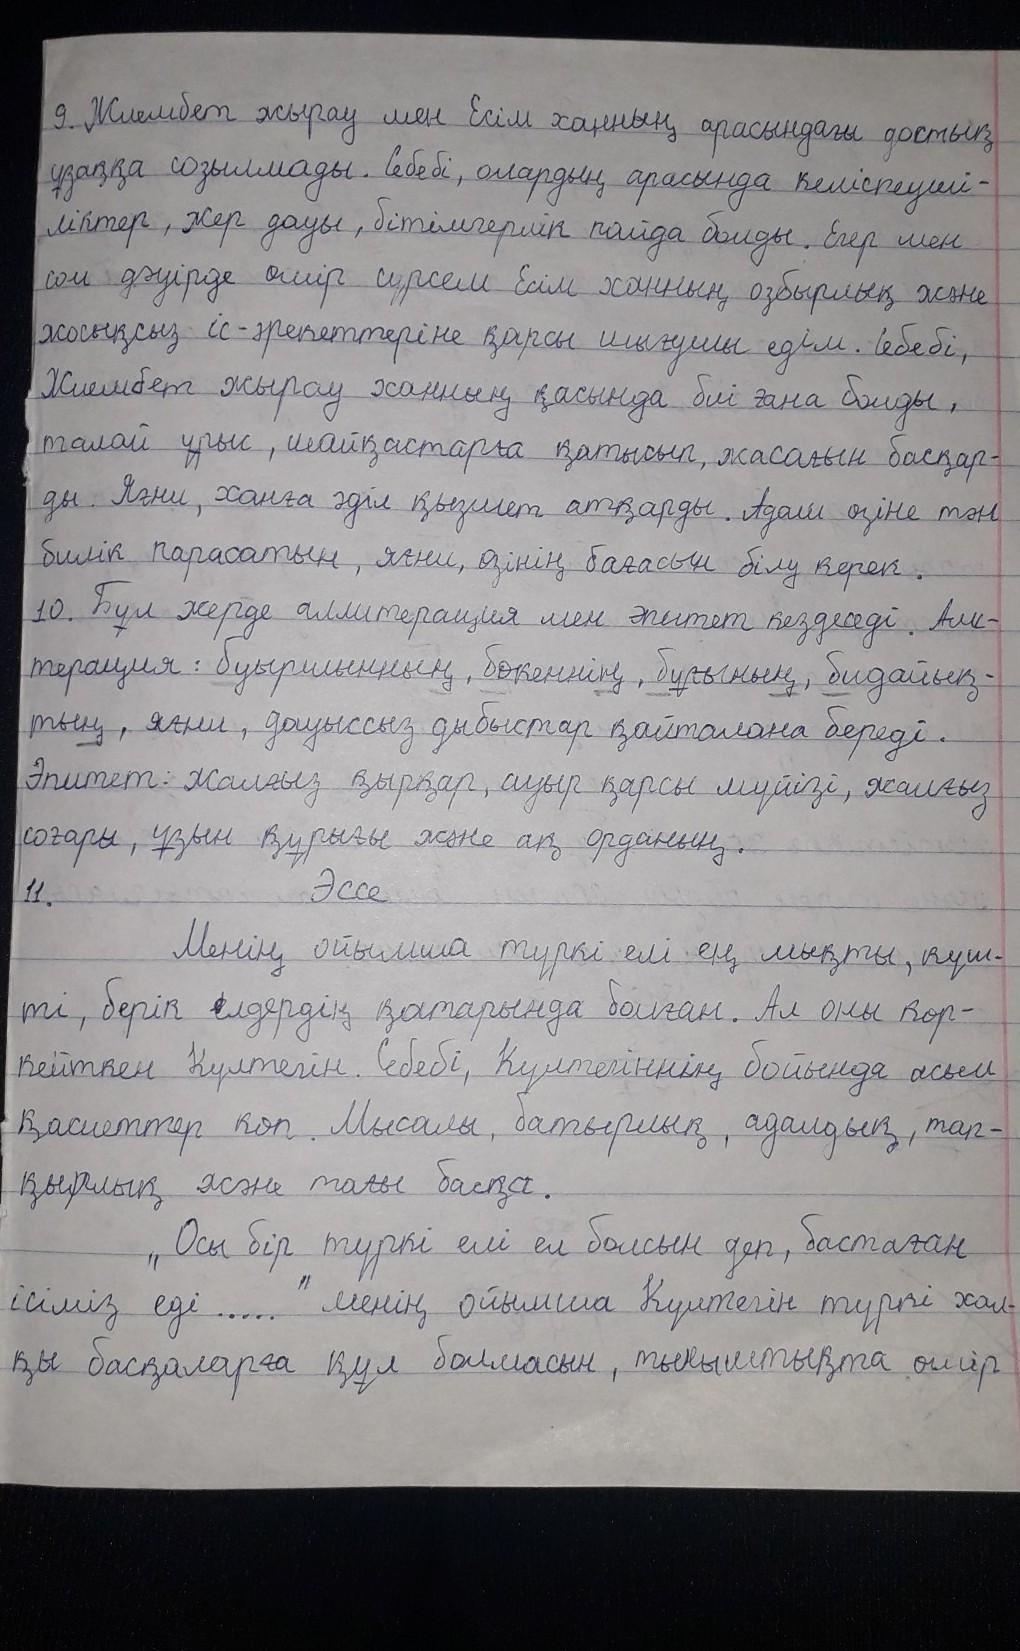 9. Жиембет жырау мен Есім ханның арасындағы достық
ұзаққа созылмады. Себебі, олардың арасында келіспеуші-
ліктер, жер дауы, бітімгерлік пайда болды. Егер мен
сол дәуірде өмір сүрсем Есім ханның озбырлық және
жосықсыз іс-әрекеттеріне қарсы шығушы едім. Себебі,
Жиембет жырау ханның қасында биі ғана болды,
талай ұрыс, шайқастарға қатысып, жасағын басқар-
ды. Яғни, ханға әділ қызмет атқарды. Адам өзіне тән
билік парасатын, яғни, өзінің бағасын білу керек.
10. Бұл жерде аллитерация мен эпитет кездеседі. Алли-
терация: буыршынның, бөкеннің, бұғының, бидайық-
тың, яғни, дауыссыз дыбыстар қайталана береді.
Эпитет: жалғыз қырқар, ауыр қарсы мүйізі, жалғыз
соғары, ұзын құрығы және ақ орданың.
11. Эссе
Менің ойымша түркі елі ең мықты, күш-
ті, берік елдердің қатарында болған. Ал оны көр-
кейткен Күлтегін. Себебі, Күлтегіннің бойында асыл
қасиеттер көп. Мысалы, батырлық, адалдық, тап-
қырлық және тағы басқа.
„Осы бір түркі елі ел болсын деп, бастаған
ісіміз еді ....." менің ойымша Күлтегін түркі хал-
қы басқаларға құл болмасын, тыныштықта өмір